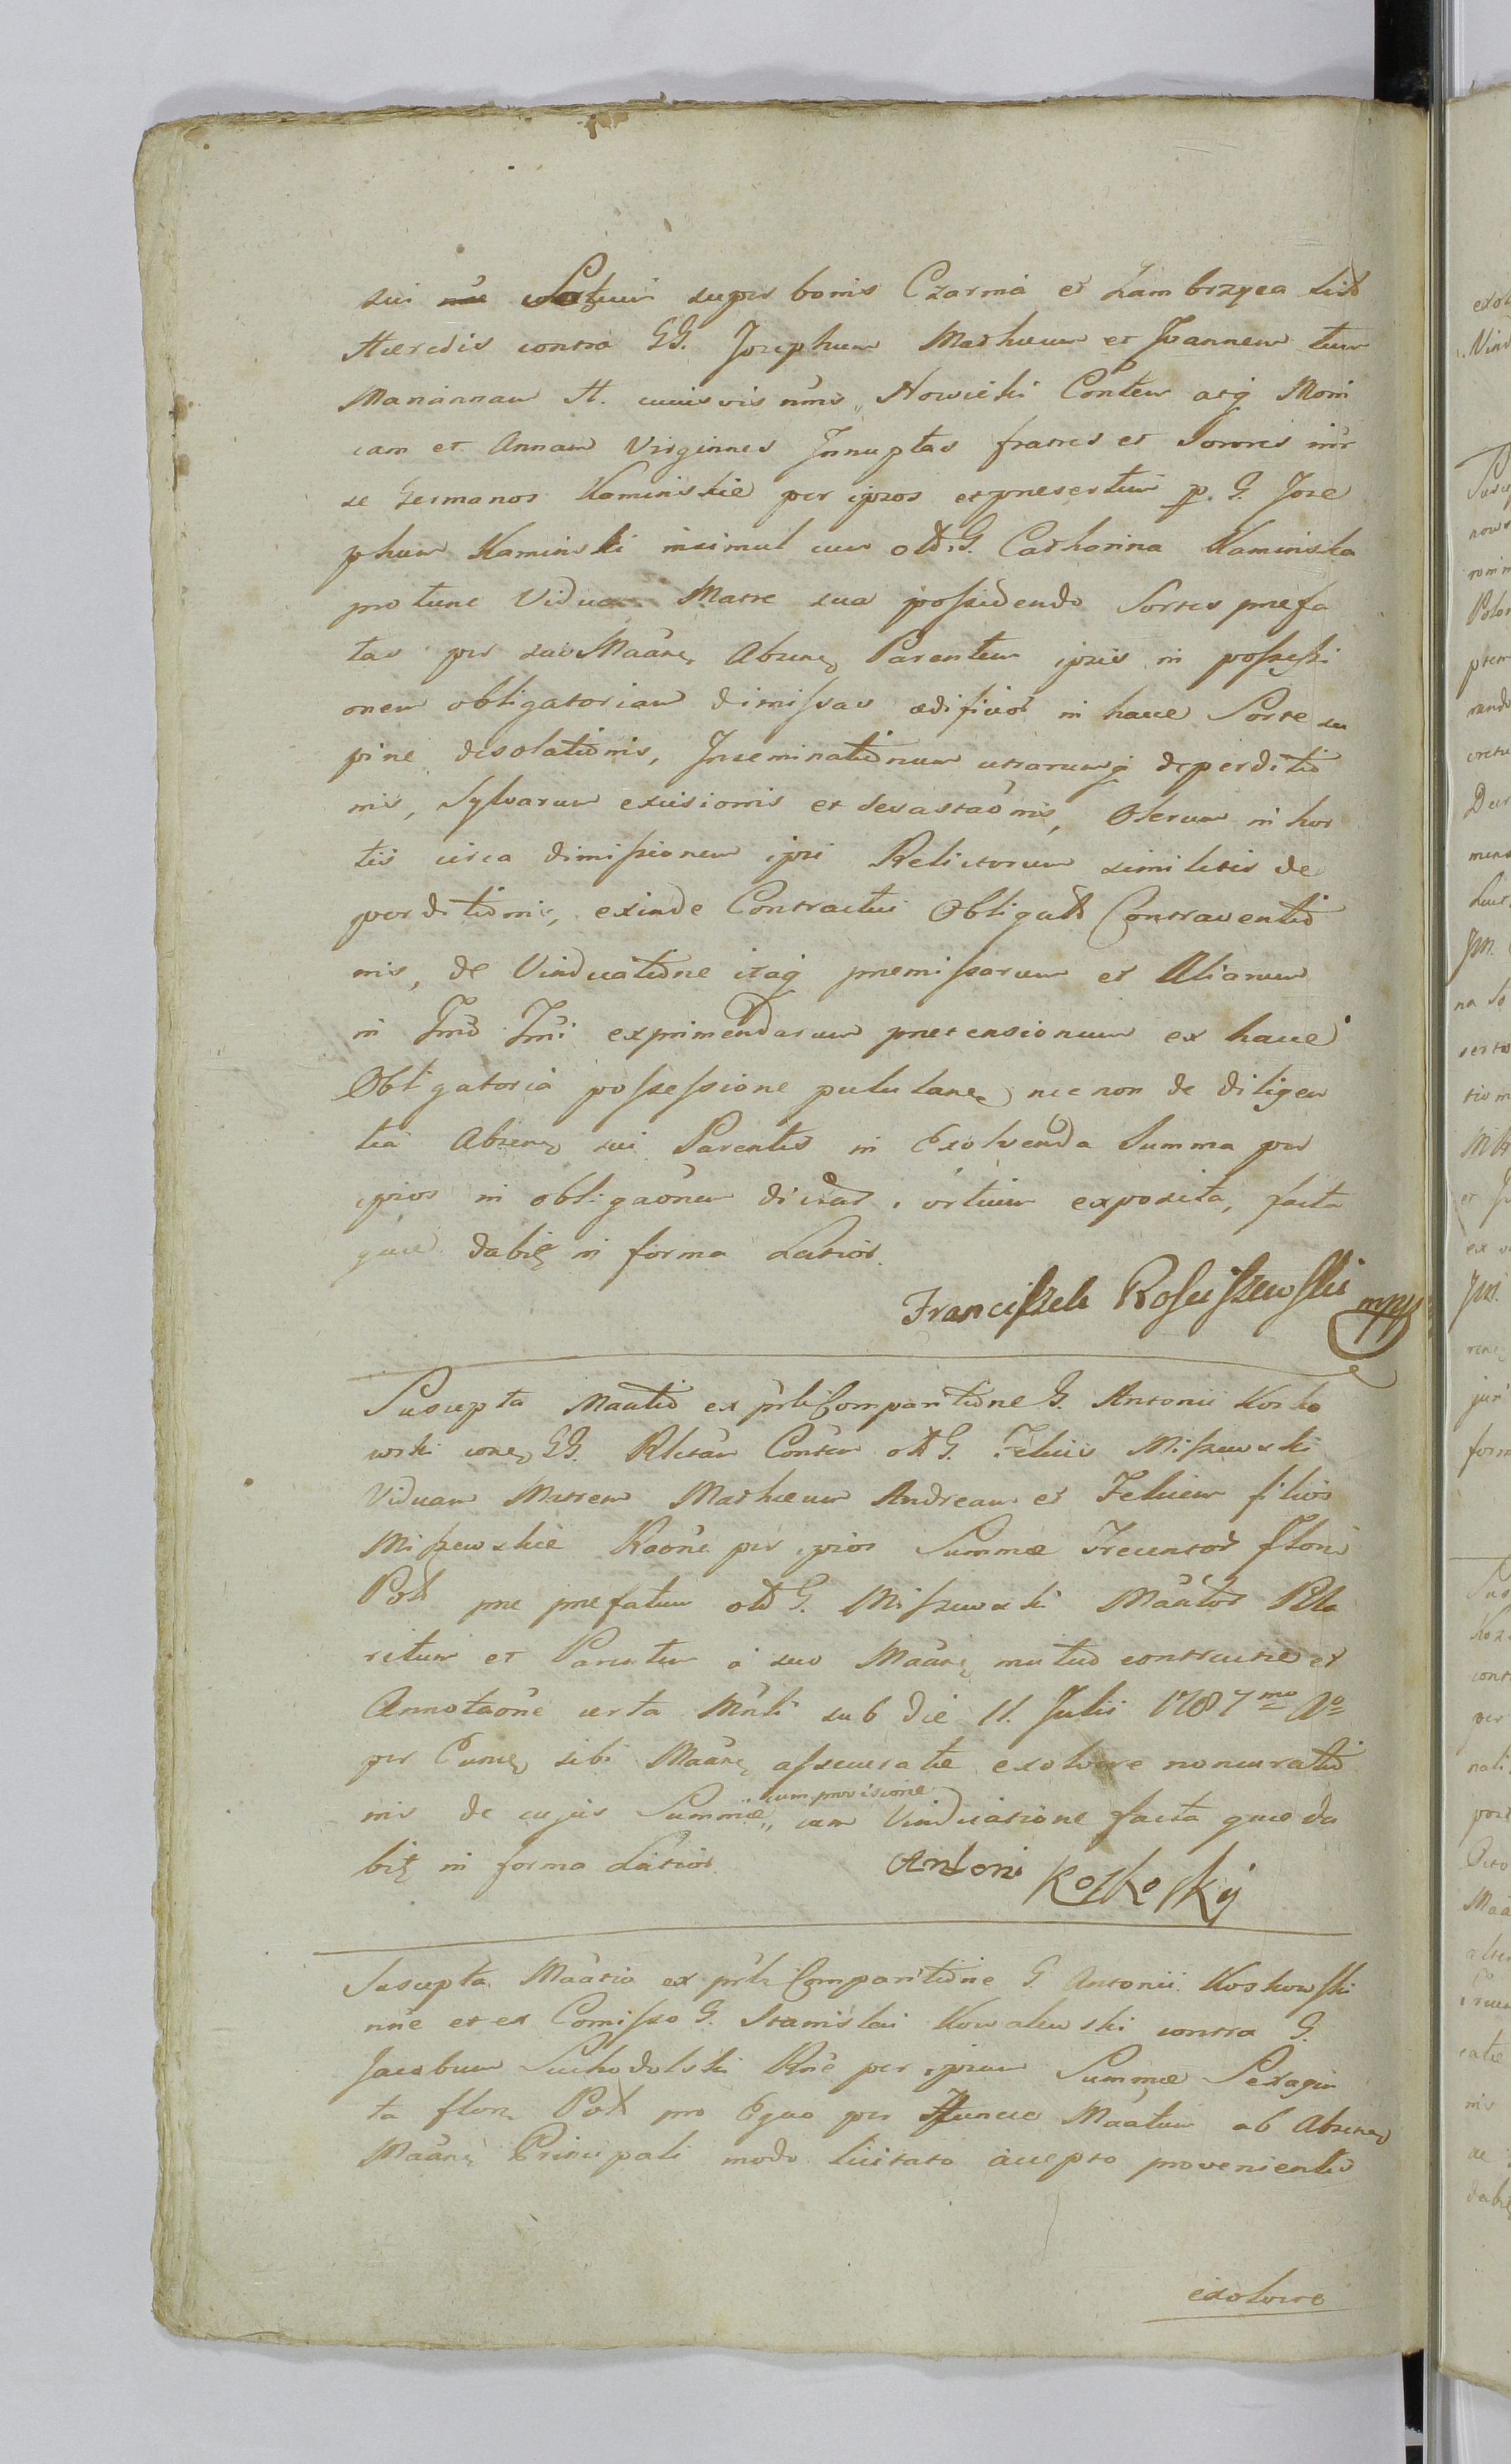 sui Sortium super bonis Czarnia et Zambrzyca sit
Hæredis contra GG. Josephum Mathæum et Joannem tum
Mariannam M. cuiusvis nm̃s Nowicki Contem atq Moni
cam et Annam Virgines Innuptas fratres et Sorores intr
se Germanos Kaminskie per ipsos et presertim p. G. Jose
phum Kaminski insimul cum old. G. Catharina Kaminska
pro tunc Vidua Matre sua possidendo Sortes prefa
tas per sui Maãne Absene Parentem ipsis in possessi
onem obligatoriam dimissas ædificior in hacce Sorte su
pine desolationis, Inseminationum utrarumq deperditio
nis, Sylvarum excisionis et devastaõnis, Olerum in hor
tis circa dimissionem ipsi Relictorum similiter de
perditionis, exinde Contractui Obligat Contraventio
nis, de Vindicatione itaq premissarum et Aliarum
in Tmo Tmi exprimendarum pretensionum ex hacce
Obligatoria possessione pululane necnon de diligen
tia Absene sui Parentis in Exolvenda Summa per
ipsos in obligaõnem dictar Sortium exposita, facta
quæ dabit in forma Latior.
Franciszek Rosciszewski mpp
Suscepta Maatio ex prli Comparitione G. Antonii Kosko
wski cone GG. Rlctam Contem old G. Felicis Miszewski
Viduam Matrem Mathæum Andream et Felicem filios
Miszewskie Raõne per ipsos Summæ Trecentor Floni
Pol pre prefatum old G. Miszewski Maator Ma
ritum et Parentem a suo Maane mutuo contractæ et
Annotaõne certa Mnli sub die 11. Julii 1787mo Ao
per Eunce sibi Maane assecuratæ exolvere noncuratio
nis de cujus Summæ cum provisione cum Vindicatione facta quæ da
bit in forma Latior.
Antoni Koskoski
Suscepta Maatio ex prli Comparitione G. Antonii Koskowski
nne et ex Comisso G. Stanislai Kowalewski contra G.
Jacobum Suchodolski Rne per ipsum Summæ Sexagin
ta flon Pol pro Equo per Hunce Maatum ab Absene
Maane Principali modo licitato accepto provenientis
exolvere